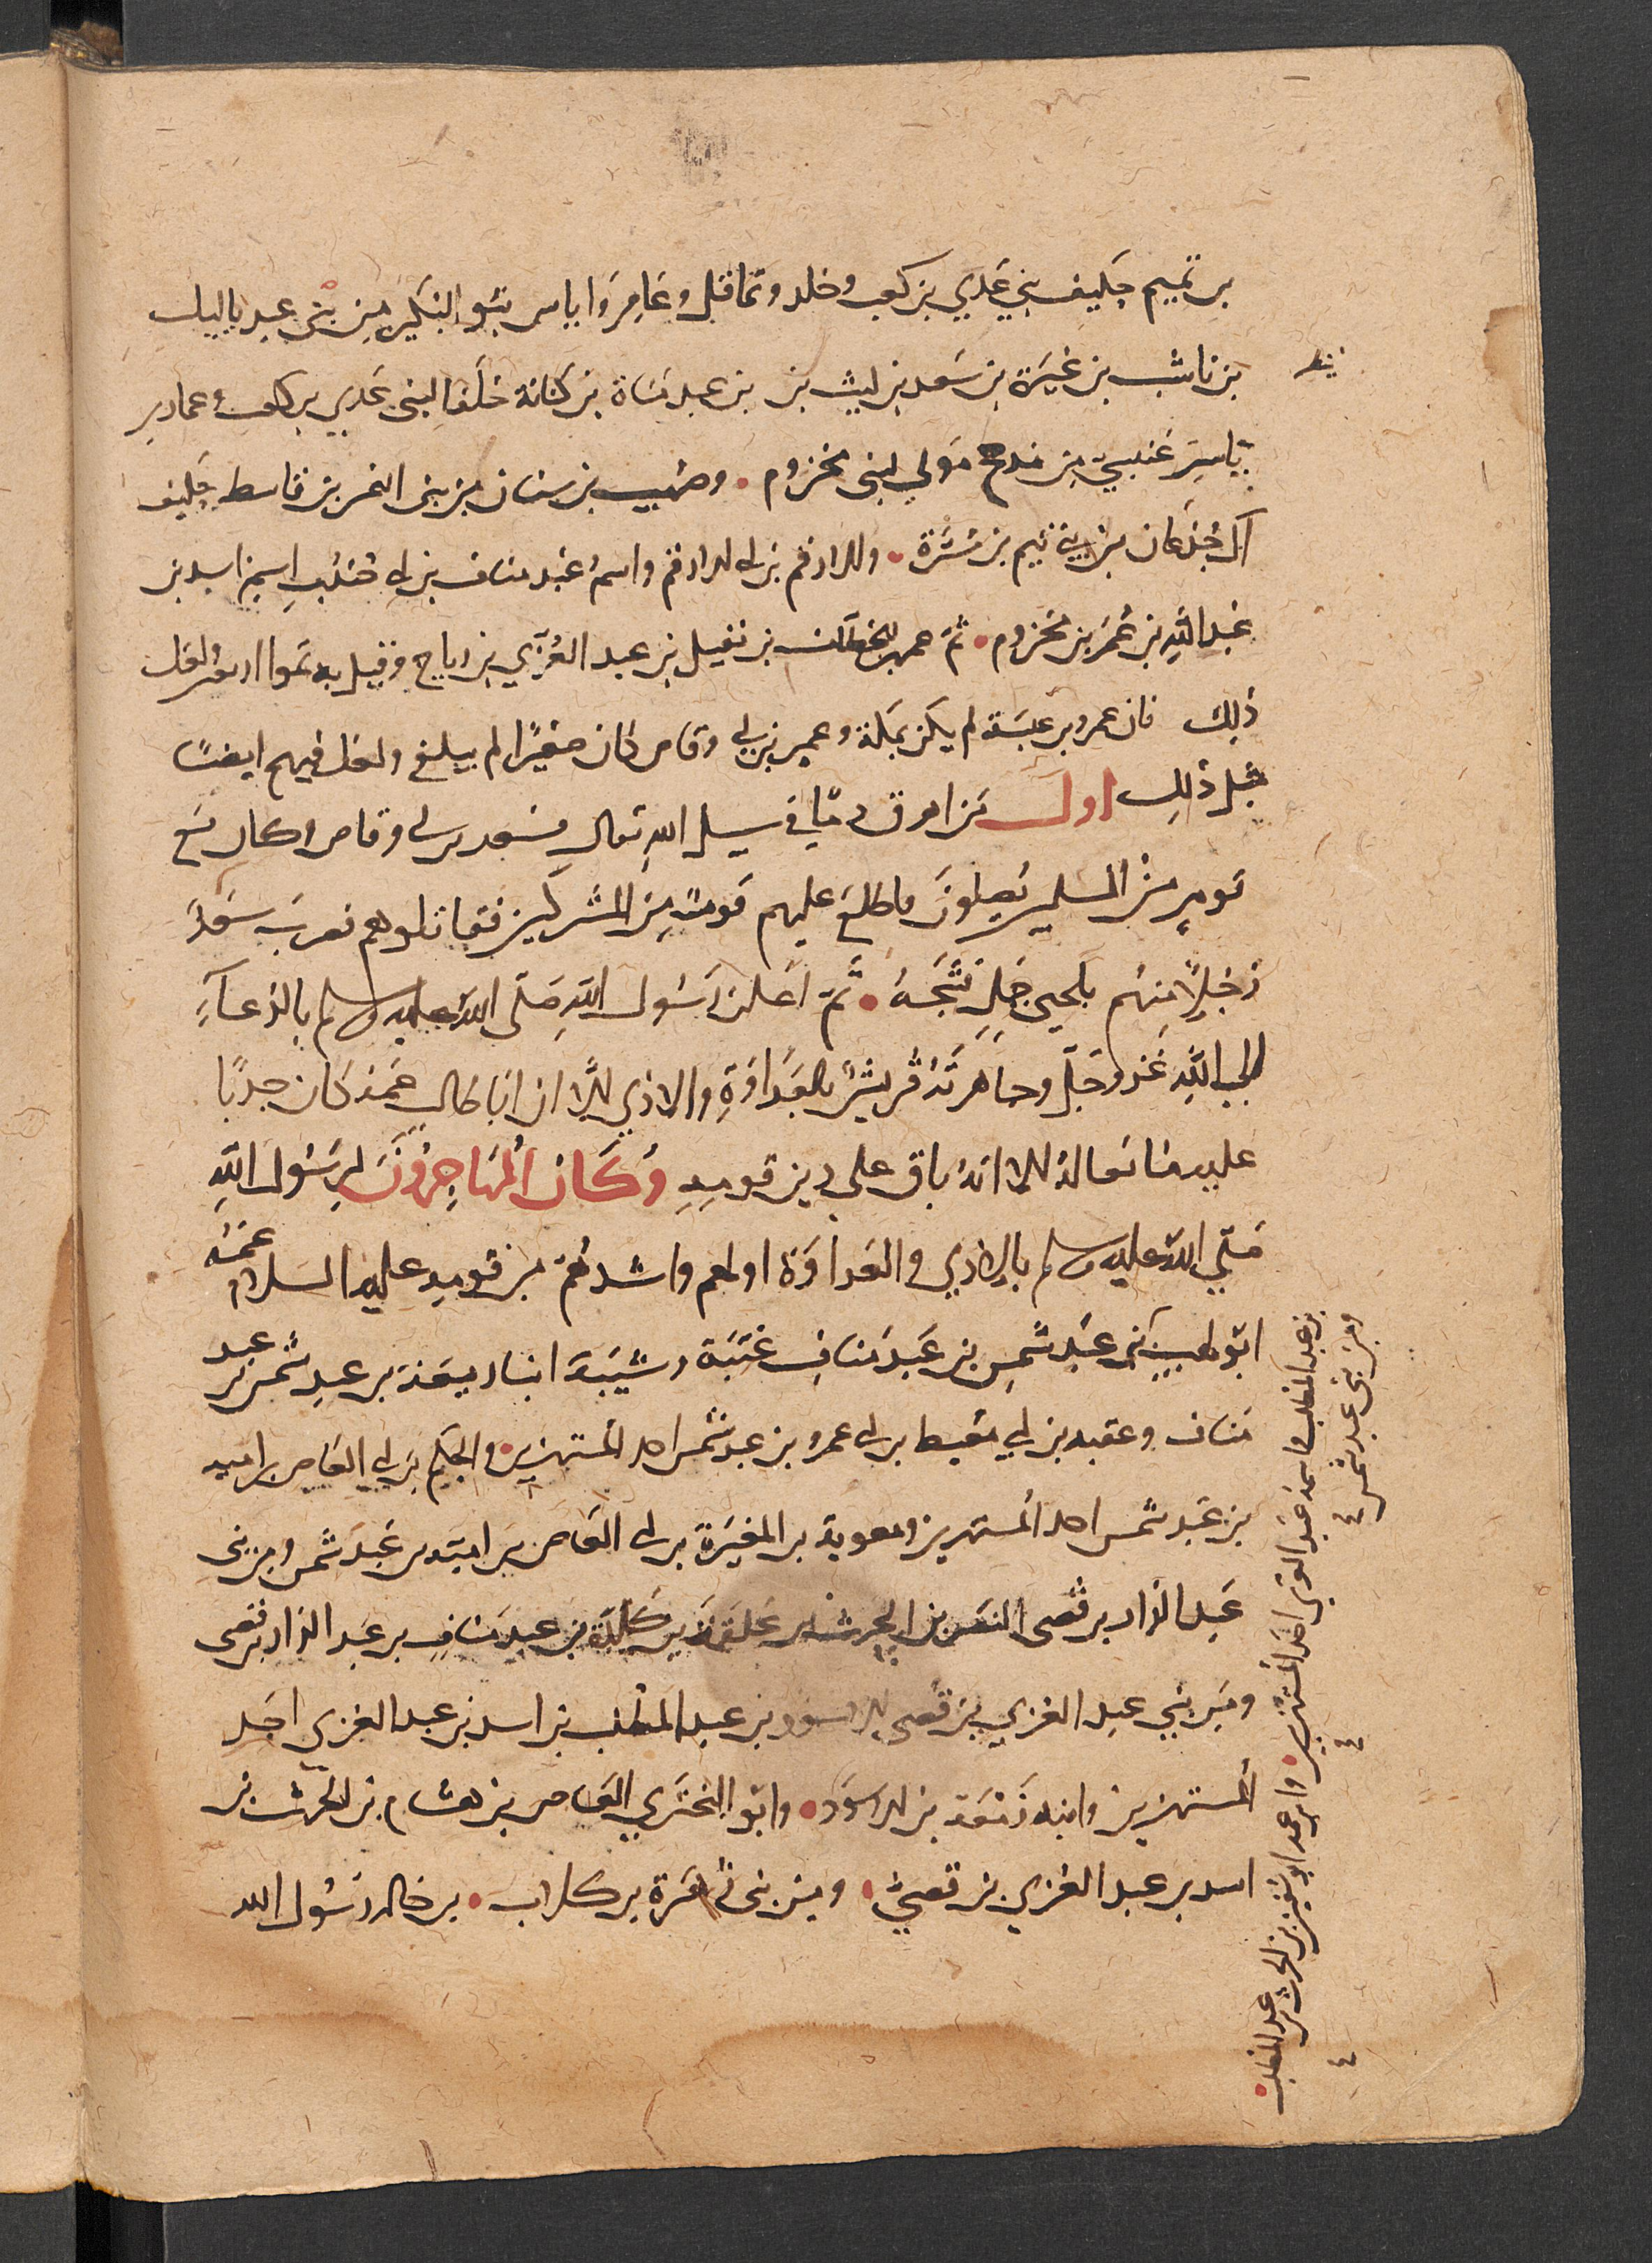 بن تميم حليف بني عدي بن كعب وخلد وعاقل وعامر واياس بنو البكير من بني عبد ياليل
بن ناشب بن غيرة بن سعد بن ليث بن بن عبد مناة بن كنانة حلفا لبني عدي بن كعب وعمار بن
ياسر عنسي من مذحج مولى لبني مخزوم • وصهيب بن سنان من بني النمر بن قاسط حليف
آل جدعان من بني تيم بن مرة • والارقم بن ابي الارقم واسمه عبد مناف بن ابي جندب اسمه اسد بن
عبد الله بن عمر بن مخزوم • ثم عمر بن الخطاب بن نفيل بن عبد العزى بن رياح وقيل به تموا اربعون ولعل
ذلك فان عمرو بن عبسة لم يكن بمكة وعمير بن ابي وقاص كان صغيرا لم يبلغ ولعل فيهم ايضا
مثل ذلك اول من اهرق دما في سبيل الله تعالى سعد بن ابي وقاص وكان مع
قوم من المسلمين يصلون فاطلع عليهم قوم من المشركين فقاتلوهم فضرب سعد
رجلا منهم بلحى جمل فشجه • ثم اعلن رسول الله صلى الله عليه وسلم بالدعاء
الى الله عز وجل وجاهرته قريش بالعداوة والاذى الا ان ابا طالب عمه كان حدبا
عليه مانعا له الا انه باق على دين قومه وكان المهاجرون لرسول الله
صلى الله عليه وسلم بالاذى والعداوة اولهم واشدهم من قومه عليه السلام عمه
ابو لهب بن عبد شمس بن عبد مناف عتبة وشيبة ابنا ربيعة بن عبد شمس بن عبد
مناف وعقبه بن ابي معيط بن ابي عمرو بن عبد شمس احد المستهزين والحكم بن ابي العاص بن اميه
بن عبد شمس احد المستهزين ومعوية بن المغيرة بن ابي العاص بن امية بن عبد شمس ومن بني
عبد الدار بن قصي النضر بن الحرث بن علقمة بن كلدة بن عبد مناف بن عبد الدار بن قصي
ومن بني عبد العزى بن قصي الاسود بن عبد المطلب بن اسد بن عبد العزى احد
المستهزين وابنه زمعة بن الاسود • وابو البختري العاص بن هشام بن الحرث بن
اسد بن عبد العزى بن قصي • ومن بني زهرة بن كلاب • بن خاله رسول الله
بن عبد المطلب واسمه عبد العزى احد المستهزين • وابن عمه ابو سفين بن الحرث بن عبد المطلب •
ومن بني عبد شمس